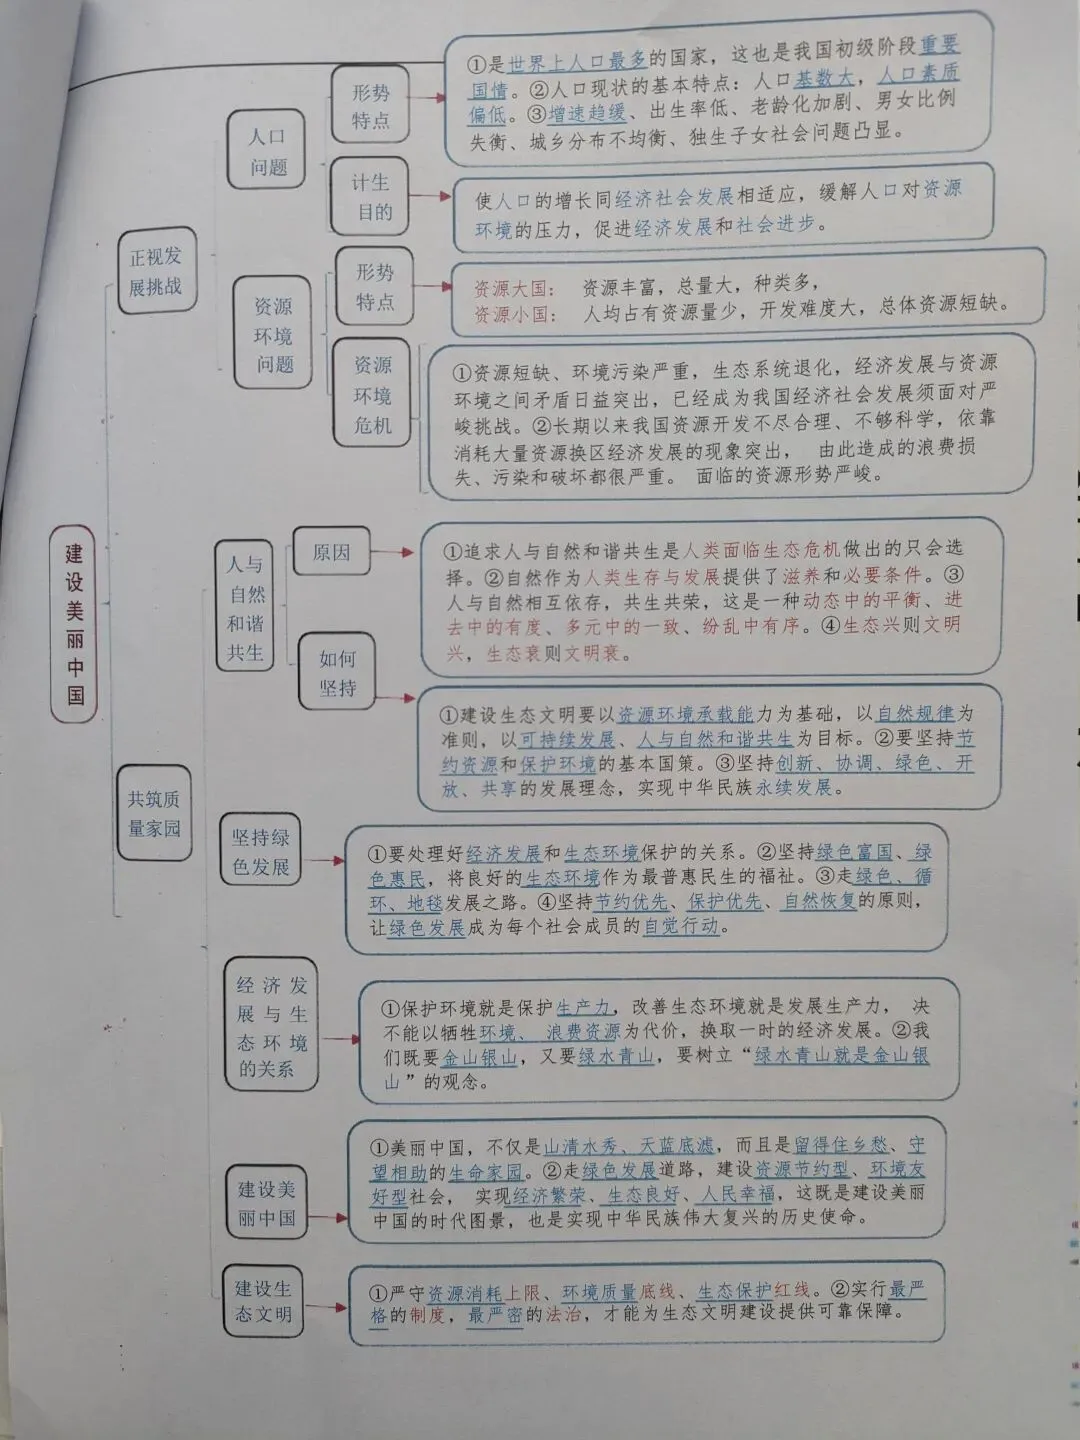 ①是世界上人口最多的国家，这也是我国初级阶段重要
国情。②人口现状的基本特点：人口基数大，人口素质
偏低。③增速趋缓、出生率低、老龄化加剧、男女比例
失衡、城乡分布不均衡、独生子女社会问题凸显。
形势
特点
人口
问题
计生
目的
使人口的增长同经济社会发展相适应，缓解人口对资源
环境的压力，促进经济发展和社会进步。
正视发
展挑战
形势
特点
资源大国： 资源丰富，总量大，种类多，
资源小国： 人均占有资源量少，开发难度大，总体资源短缺。
资源
环境
问题
资源
环境
危机
①资源短缺、环境污染严重，生态系统退化，经济发展与资源
环境之间矛盾日益突出，已经成为我国经济社会发展须面对严
峻挑战。②长期以来我国资源开发不尽合理、不够科学，依靠
消耗大量资源换区经济发展的现象突出， 由此造成的浪费损
失、污染和破坏都很严重。 面临的资源形势严峻。
建
设
美
丽
中
国
人与
自然
和谐
共生
原因
①追求人与自然和谐共生是人类面临生态危机做出的只会选
择。②自然作为人类生存与发展提供了滋养和必要条件。③
人与自然相互依存，共生共荣，这是一种动态中的平衡、进
去中的有度、多元中的一致、纷乱中有序。④生态兴则文明
兴，生态衰则文明衰。
如何
坚持
①建设生态文明要以资源环境承载能力为基础，以自然规律为
准则，以可持续发展、人与自然和谐共生为目标。②要坚持节
约资源和保护环境的基本国策。③坚持创新、协调、绿色、开
放、共享的发展理念，实现中华民族永续发展。
共筑质
量家园
坚持绿
色发展
①要处理好经济发展和生态环境保护的关系。②坚持绿色富国、绿
色惠民，将良好的生态环境作为最普惠民生的福祉。③走绿色、循
环、地毯发展之路。④坚持节约优先、保护优先、自然恢复的原则，
让绿色发展成为每个社会成员的自觉行动。
经济发
展与生
态环境
的关系
①保护环境就是保护生产力，改善生态环境就是发展生产力， 决
不能以牺牲环境、 浪费资源为代价，换取一时的经济发展。②我
们既要金山银山，又要绿水青山，要树立“绿水青山就是金山银
山”的观念。
建设美
丽中国
①美丽中国，不仅是山清水秀、天蓝底滤，而且是留得住乡愁、守
望相助的生命家园。②走绿色发展道路，建设资源节约型、环境友
好型社会， 实现经济繁荣、生态良好、人民幸福，这既是建设美丽
中国的时代图景，也是实现中华民族伟大复兴的历史使命。
建设生
态文明
①严守资源消耗上限、环境质量底线、生态保护红线。②实行最严
格的制度，最严密的法治，才能为生态文明建设提供可靠保障。